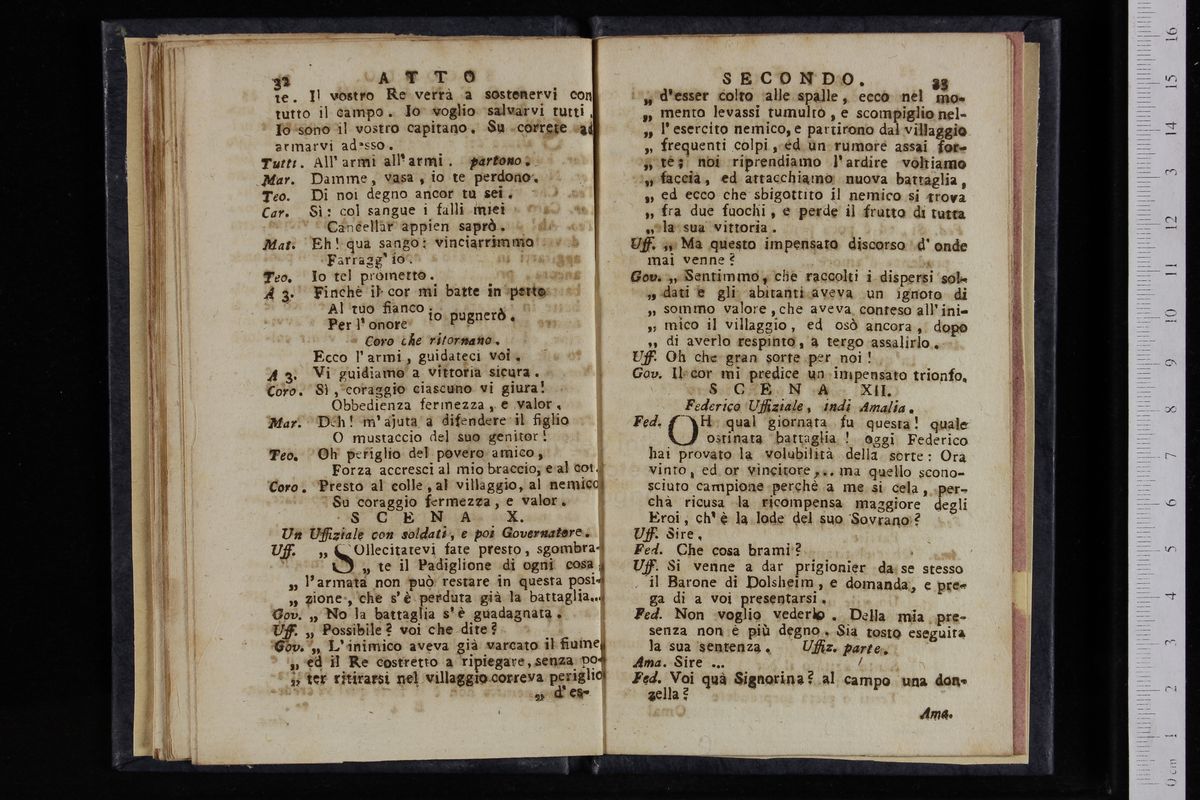 32 ATTO
te. Il vostro Re verrà a sostenervi con
tutto il campo. Io voglio salvarvi tutti.
Io sono il vostro capitano. Su correte ad
armarvi adesso.
Tutti. All' armi all' armi. partono.
Mar. Damme, vasa, io te perdono.
Teo. Di noi degno ancor tu sei.
Car. Sì: col sangue i falli miei
Cancellar appien saprò.
Mat. Eh! qua sango: vinciarrimmo
Farragg' io.
Teo. Io tel prometto.
A 3. Finchè il cor mi batte in petto
Al tuo fianco
Per l' onore io pugnerò.
Coro che ritornano.
Ecco l' armi, guidateci voi.
A 3. Vi guidiamo a vittoria sicura.
Coro. Sì, coraggio ciascuno vi giura!
Obbedienza fermezza, e valor.
Mar. Deh! m' ajuta a difendere il figlio
O mustaccio del suo genitor!
Teo. Oh periglio del povero amico,
Forza accresci al mio braccio, e al cor.
Coro. Presto al colle, al villaggio, al nemico
Su coraggio fermezza, e valor.
SCENA X.
Un Uffiziale con soldati, e poi Governatore.
Uff. „ SOllecitatevi fate presto, sgombra-
„ te il Padiglione di ogni cosa
„ l'armata non può restare in questa posi-
„ zione, che s'è perduta già la battaglia...
Gov. „ No la battaglia s'è guadagnata.
Uff. „ Possibile? voi che dite?
Gov. „ L'inimico aveva già varcato il fiume
„ ed il Re costretto a ripiegare, senza po-
„ ter ritirarsi nel villaggio correva periglio
„ d'es-
SECONDO. 33
„ d'esser colto alle spalle, ecco nel mo-
„ mento levassi tumulto, e scompiglio nel-
„ l'esercito nemico, e partirono dal villaggio
„ frequenti colpi, ed un rumore assai for-
„ te; noi riprendiamo l'ardire voltiamo
„ faccia, ed attacchiamo nuova battaglia,
„ ed ecco che sbigottito il nemico si trova
„ fra due fuochi, e perde il frutto di tutta
„ la sua vittoria.
Uff. „ Ma questo impensato discorso d' onde
mai venne?
Gov. „ Sentimmo, che raccolti i dispersi sol-
„ dati e gli abitanti aveva un ignoto di
„ sommo valore, che aveva conteso all' ini-
„ mico il villaggio, ed osò ancora, dopo
„ di averlo respinto, a tergo assalirlo.
Uff. Oh che gran sorte per noi!
Gov. Il cor mi predice un impensato trionfo.
SCENA XII.
Federico Uffiziale, indi Amalia.
Fed. OH qual giornata fu questa! quale
ostinata battaglia! oggi Federico
hai provato la volubilità della sorte: Ora
vinto, ed or vincitore,... ma quello scono-
sciuto campione perchè a me si cela, per-
chà ricusa la ricompensa maggiore degli
Eroi, ch' è la lode del suo Sovrano?
Uff. Sire.
Fed. Che cosa brami?
Uff. Si venne a dar prigionier da se stesso
il Barone di Dolsheim, e domanda, e pre-
ga di a voi presentarsi.
Fed. Non voglio vederlo. Della mia pre-
senza non è più degno. Sia tosto eseguita
la sua sentenza. Uffiz. parte.
Ama. Sire ...
Fed. Voi quà Signorina? al campo una don-
zella?
Ama.